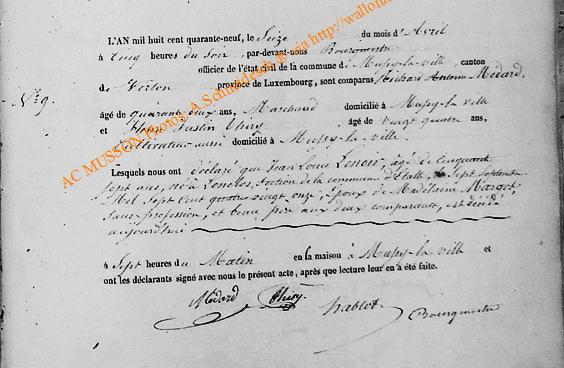 L'AN mil huit cent quarante-neuf, le Seize du mois d'Avril
à Cinq heures du Soir par-devant-nous Bourgmestre
officier de l'état civil de la commune de Mussy-la-ville, canton
de Virton province de Luxembourg, sont comparus Richard Antoine Médard,
No 9.
âgé de quarante deux ans, Marchand domicilié à Mussy-la ville
et Justin Thiry âgé de vingt quatre ans,
Cultivateur aussi domicilié à Mussy-la ville
Lesquels nous ont déclaré que Jean Louis, âgé de Cinquante
sept ans, né à, Section de la commune d'Etalle, le Sept Septembre
Mil Sept Cent quatre vingt onze, Epoux de Madelaine Margot
Sans profession, et beau père aux deux comparants, est décédé
aujourd'hui
à Sept heures du Matin en la maison à Mussy-la ville et
ont les déclarants signé avec nous le présent acte, après que lecture leur en a été faite.
Médard Thiry. habtot
Bourgmestre
AC MUSSON Photos A Schmidesch @ via http://wallon